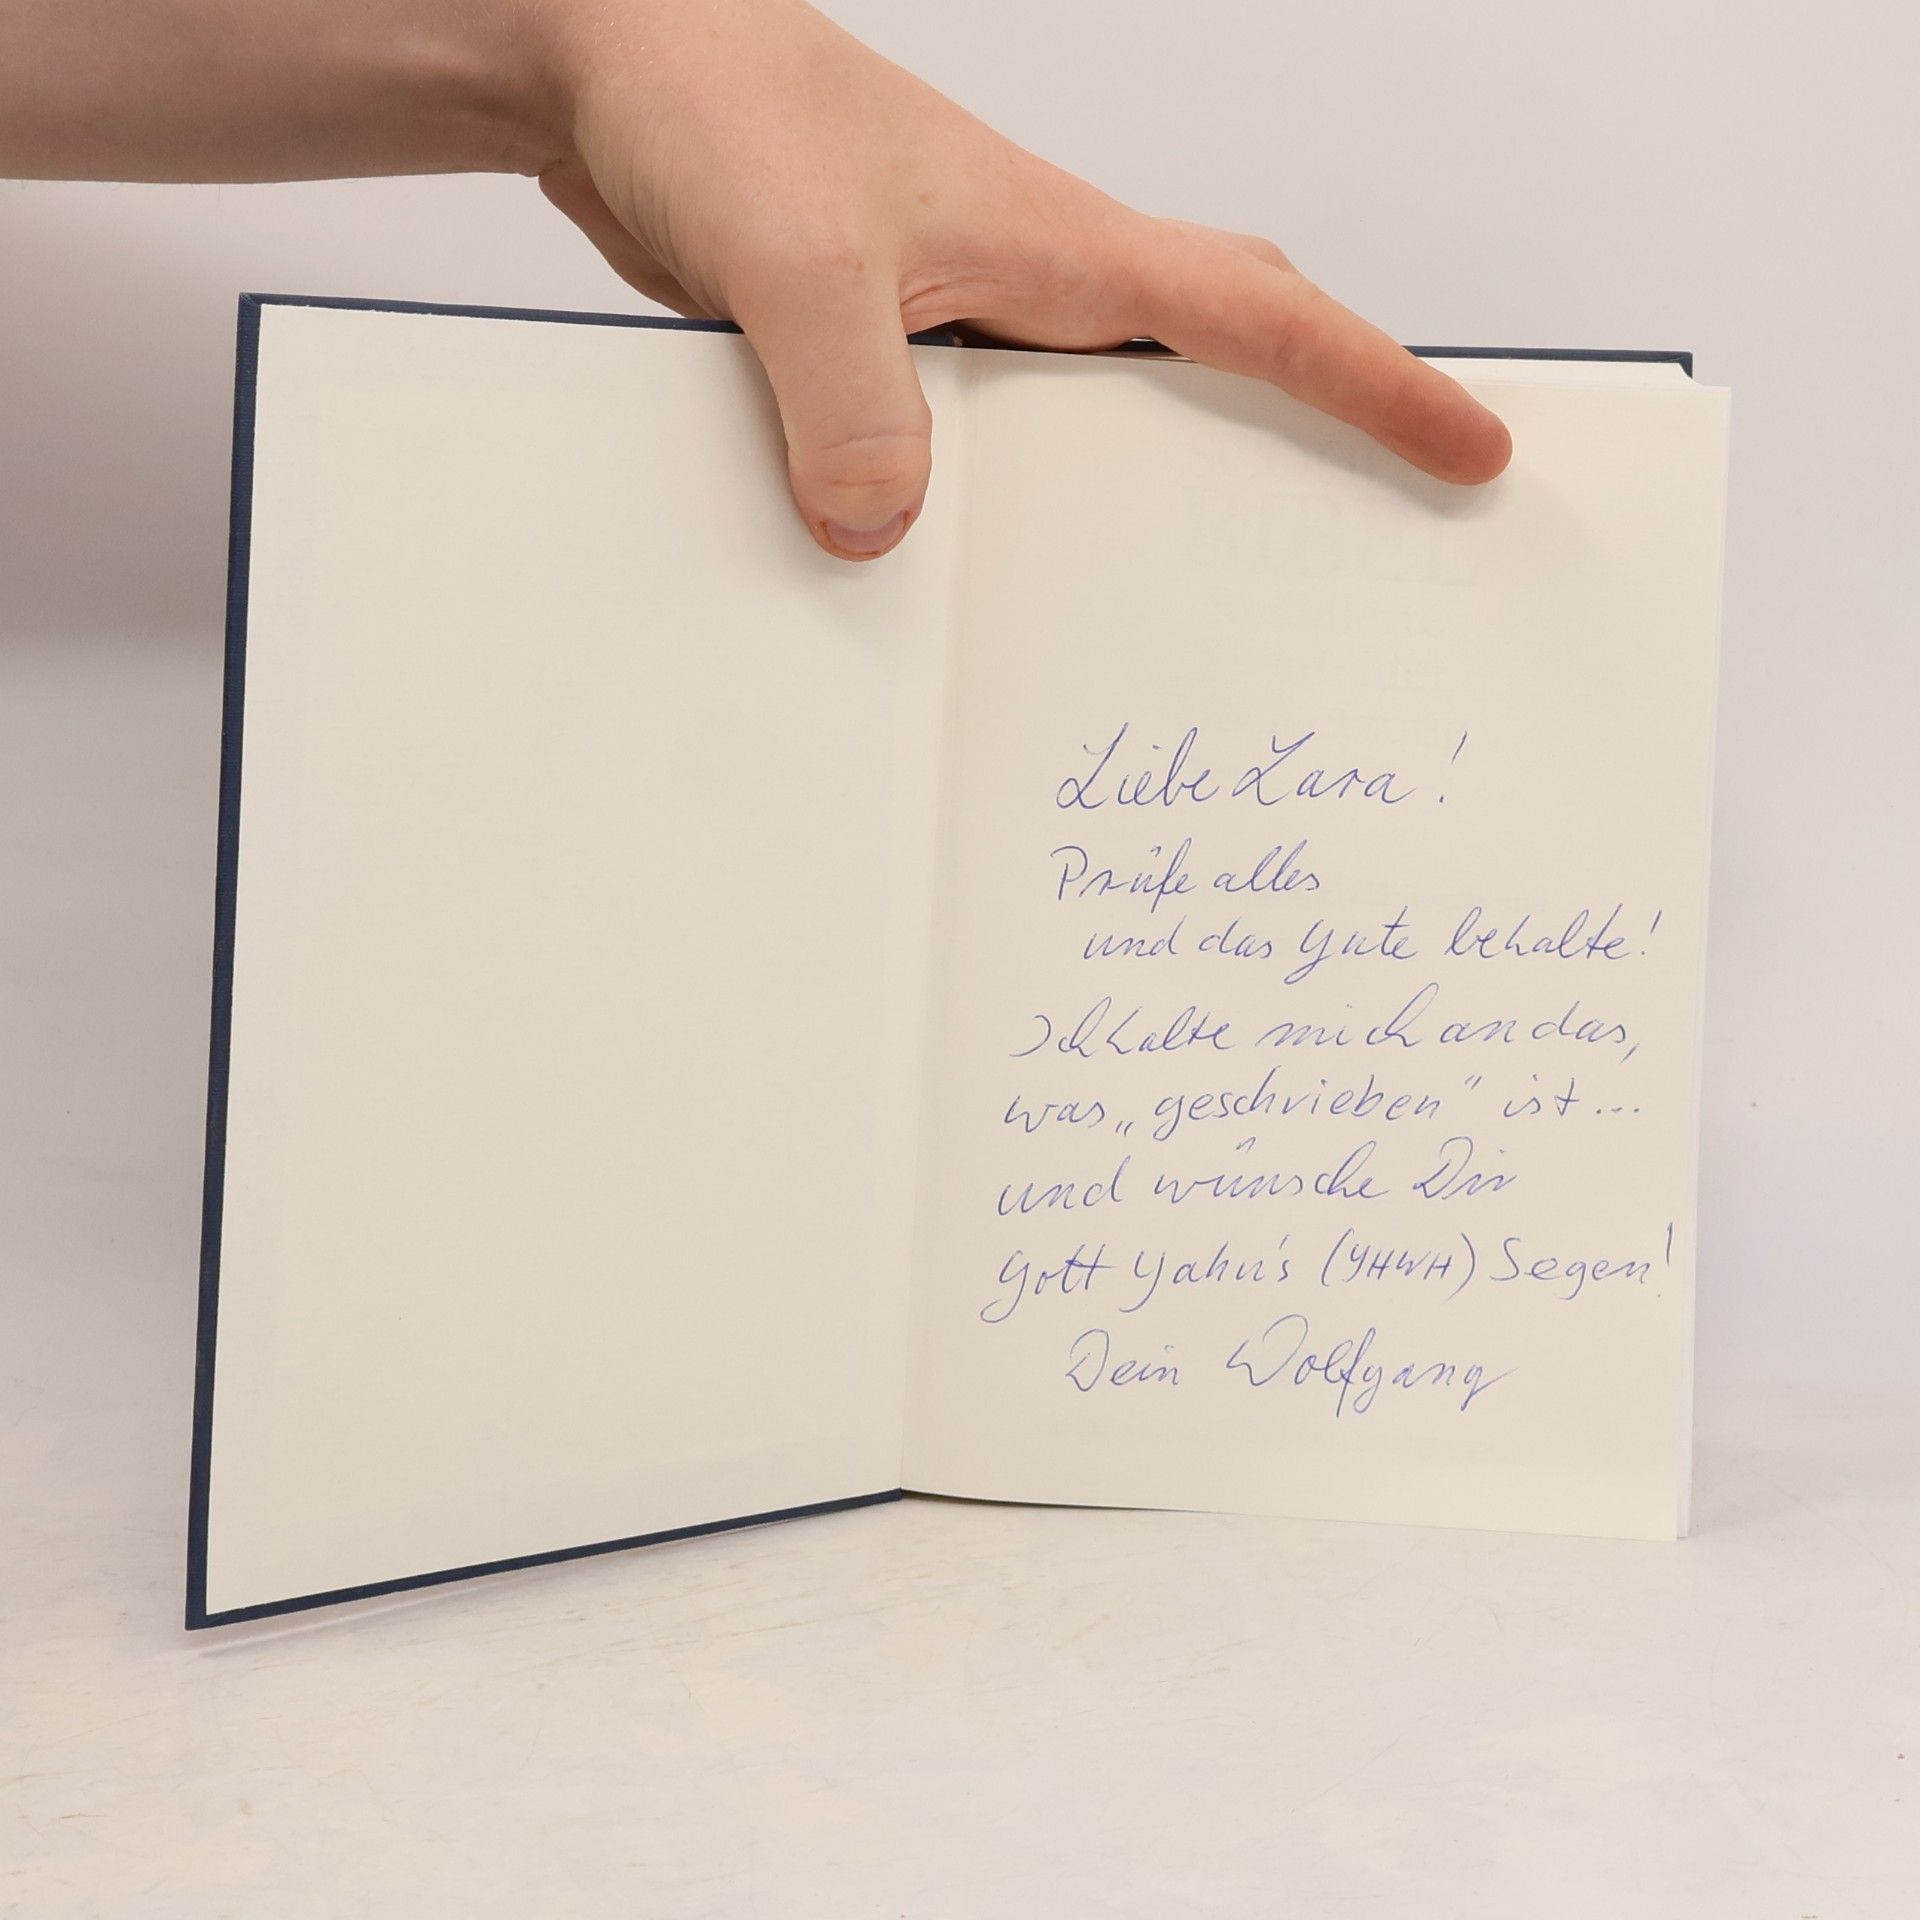 Liebe Lara!
Prüfe alles
und das Gute behalte!
Ich halte mich an das,
was „geschrieben" ist...
und wünsche Dir
Gott Yahu's (YHWH) Segen!
Dein Wolfgang